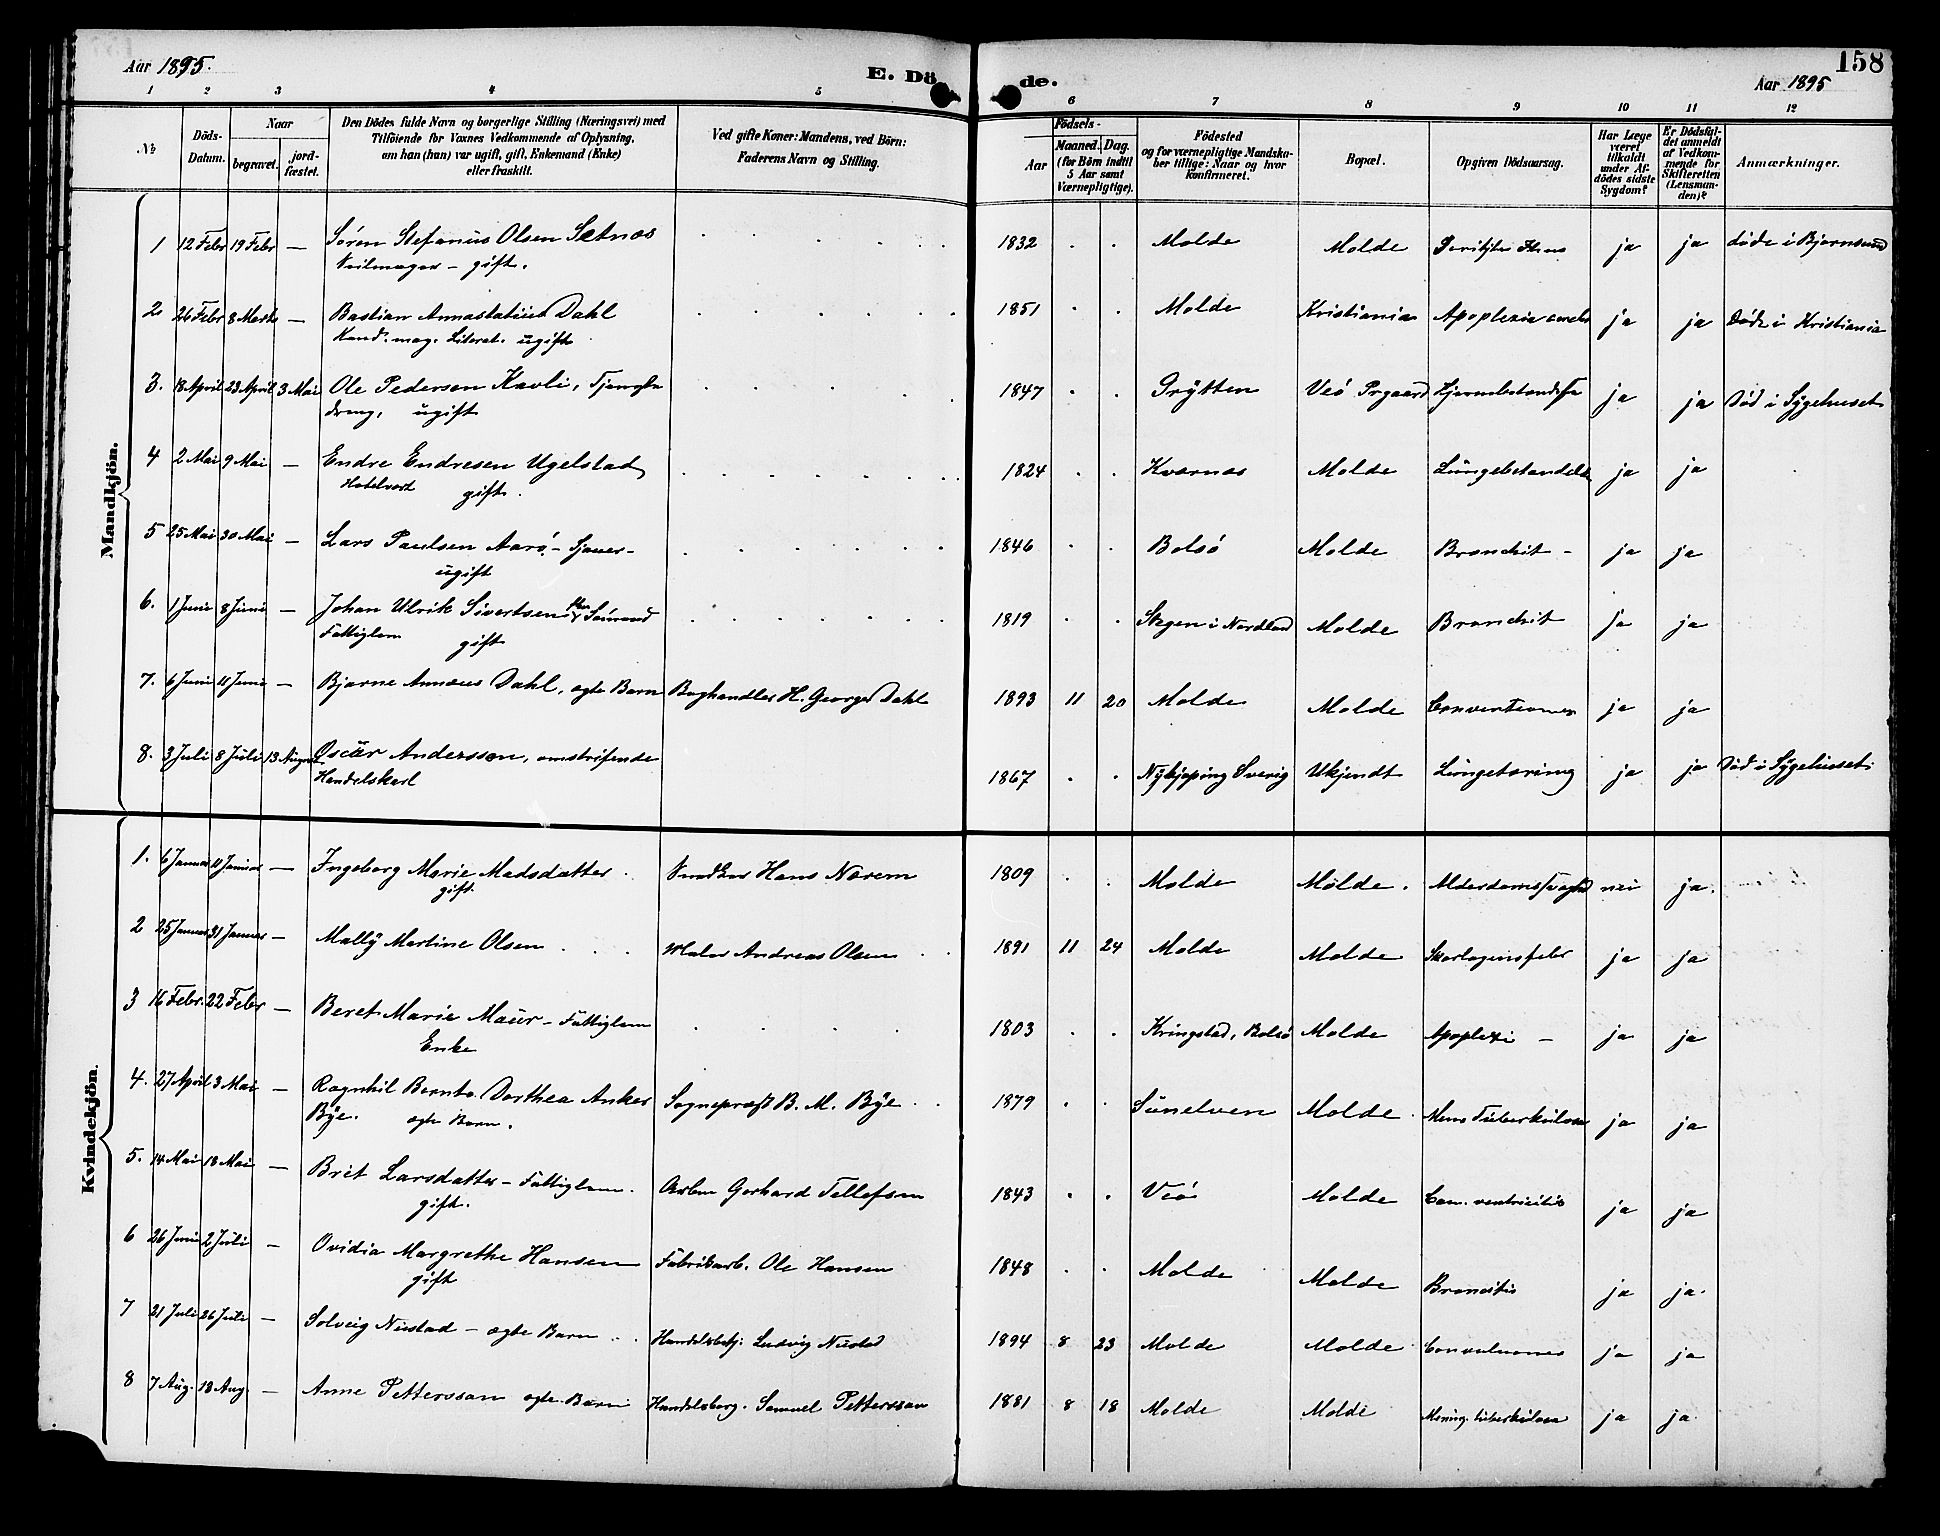 Aar 1895.
E. Dö de.
158
Aar 1895
1 2 3 4 5 6 7 8 9 10 11 12
No
Döds-Datum.
Naar
begravet.
jord-fæstet.
Den Dödes fulde Navn og borgerlige Stilling (Næringsvei) med
Tilföiende for Voxnes Vedkommende af Oplysning,
om han (hun) var ugift, gift, Enkemand (Enke)
eller fraskilt.
Ved gifte Koner: Mandens, ved Börn:
Faderens Navn og Stilling.
Födsels-
Aar
Maaned. Dag.
(for Börn indtil
5 Aar samt
Værnepligtige).
Födested
og for værnepligtige Mandska-
ber tillige: Naar og hvor
konfirmeret.
Bopæl.
Opgiven Dödsaarsag.
Har Læge
været
tilkaldt
under Af-
dödes sidste
Sygdom?
Er Dödsfal-
det anmeldt
af Vedkom-
mende for
Skifteretten
(Lensman-
den)?
Anmærkninger.
Mandkjön.
1 12 Febr 19 Febr — Søren Stefanus Olsen Sætnes 1832 Molde Molde ja ja døde i Bjørnsund
gift.
2 26 Febr 8 Marts — Bastian Annastatius Dahl 1851 Molde Kristiania Apoplexia cerebr ja ja Døde i Kristiania
Kand. mag. Literat. ugift
3. 18 April 23 April 3 Mai Ole Pedersen Kavli, Tjeneste 1847 Grÿtten Veö Prgaard ja ja Død i Sÿgehuset
dreng, ugift
4 2 Mai 9 Mai — Endre Endresen Ugelstad 1824 Kvernes Molde Lungebetændelse ja ja
Hotelvert gift.
5 25 Mai 30 Mai — Lars Paulsen Aarö — Sjauer — 1846 Bolsö Molde Bronchit — ja ja
ugift
6. 1 Juni 8 Juni — Johan Ulrik Sivertsen 1819 Stegen i Nordland Molde Bronchit ja ja
Fattiglem gift
7. 6 Juni 11 Juni — Bjarne Annæus Dahl, ægte Barn Boghandler H. George Dahl 1893 11 20 Molde Molde ja ja
8. 3 Juli 8 Juli 13 August Oscar Andersson, omstreifende 1867 Nÿkjøping Sverig Ukjendt Lungetæring ja ja Død i Sÿgehuset
Handelskarl
Kvindekjön.
1. 6 Januar 11 Januar — Ingeborg Marie Madsdatter Hans Nærem 1809 Molde Molde. nei ja.
gift
2 25 Januar 31 Januar — Mallÿ Martine Olsen Maler Andreas Olsen 1891 11 24 Molde Molde Skarlagensfeber ja ja
3 16 Febr. 22 Febr — Beret Marie Maur — Fattiglem 1803 Kringstad, Bolsö Molde Apoplexi — ja ja
Enke
4. 27 April 3 Mai — Ragnhil Bernto Dorthea Anker Sognepræst B. M. Bÿe 1879 Sunelven Molde ja ja
Bÿe. ægte Barn.
5. 14 Mai 18 Mai — Brit Larsdatter — Fattiglem. Arbm Gerhard Tellefsen 1843 Veö Molde ja ja
gift.
6 26 Juni 2 Juli — Ovidia Margrethe Hansen Fabrikarb. Ole Hansen 1848 Molde Molde Bronchitis ja ja.
gift
7 21 Juli 26 Juli — Solveig Nustad — ægte Barn Handelsbetj. Ludvig Nustad 1894 8 23 Molde Molde Convulsiones ja ja
8 7 Aug. 13 Aug — Anne Pettersson ægte Barn Handelsborg. Samuel Pettersson 1881 8 18 Molde Molde Mening. tuberkulosa ja ja.